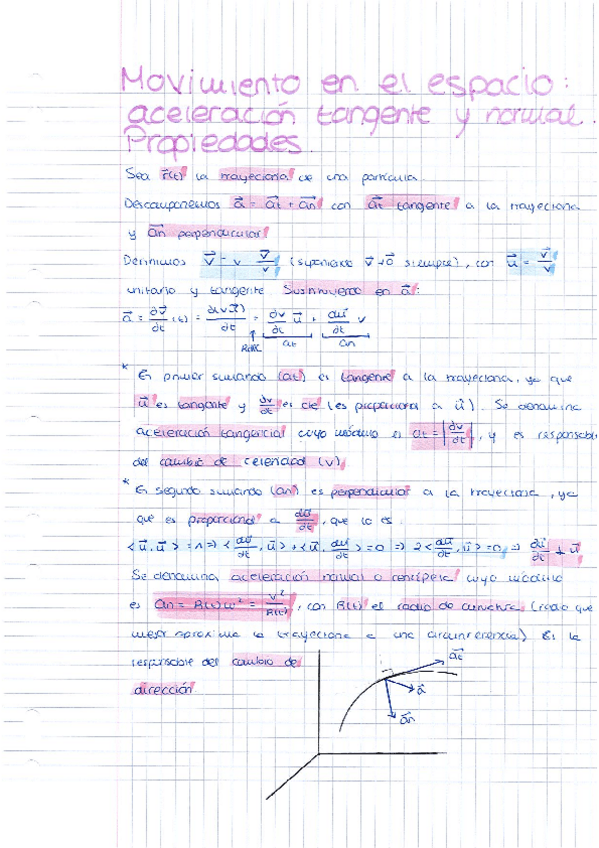 Movimiento en el espacio:
aceleración tangente y normal.
Propiedades
Sea r⃗(t) la trayectoria de una partícula.
Descomponemos a⃗ = a⃗t + a⃗n con a⃗t tangente a la trayectoria
y a⃗n perpendicular
Definimos v⃗ = v v⃗/v (suponiendo v⃗ ≠ 0⃗ siempre), con u⃗ = v⃗/v
unitario y tangente. Sustituyendo en a⃗:
a⃗ = ∂v⃗/∂t (t) = ∂(v u⃗)/∂t = ∂v/∂t u⃗ + ∂u⃗/∂t v
at an
* El primer sumando (at) es tangente a la trayectoria, ya que
u⃗ es tangente y ∂v/∂t es cte (es proporcional a u⃗). Se denomina
aceleración tangencial cuyo módulo es at = |∂v/∂t|, y es responsable
del cambio de celeridad (v).
* El segundo sumando (an) es perpendicular a la trayectoria, ya
que es proporcional a ∂u⃗/∂t, que lo es.
<u⃗, u⃗> = 1 ⇒ <∂u⃗/∂t, u⃗> + <u⃗, ∂u⃗/∂t> = 0 ⇒ 2<∂u⃗/∂t, u⃗> = 0 ⇒ ∂u⃗/∂t ⊥ u⃗
Se denomina aceleración normal o centrípeta cuyo módulo
es an = R(t) ω² = v²/R(t), con R(t) el radio de curvatura (radio que
mejor aproxima la trayectoria a una circunferencia). Es la
responsable del cambio de
dirección
a⃗t
a⃗
a⃗n